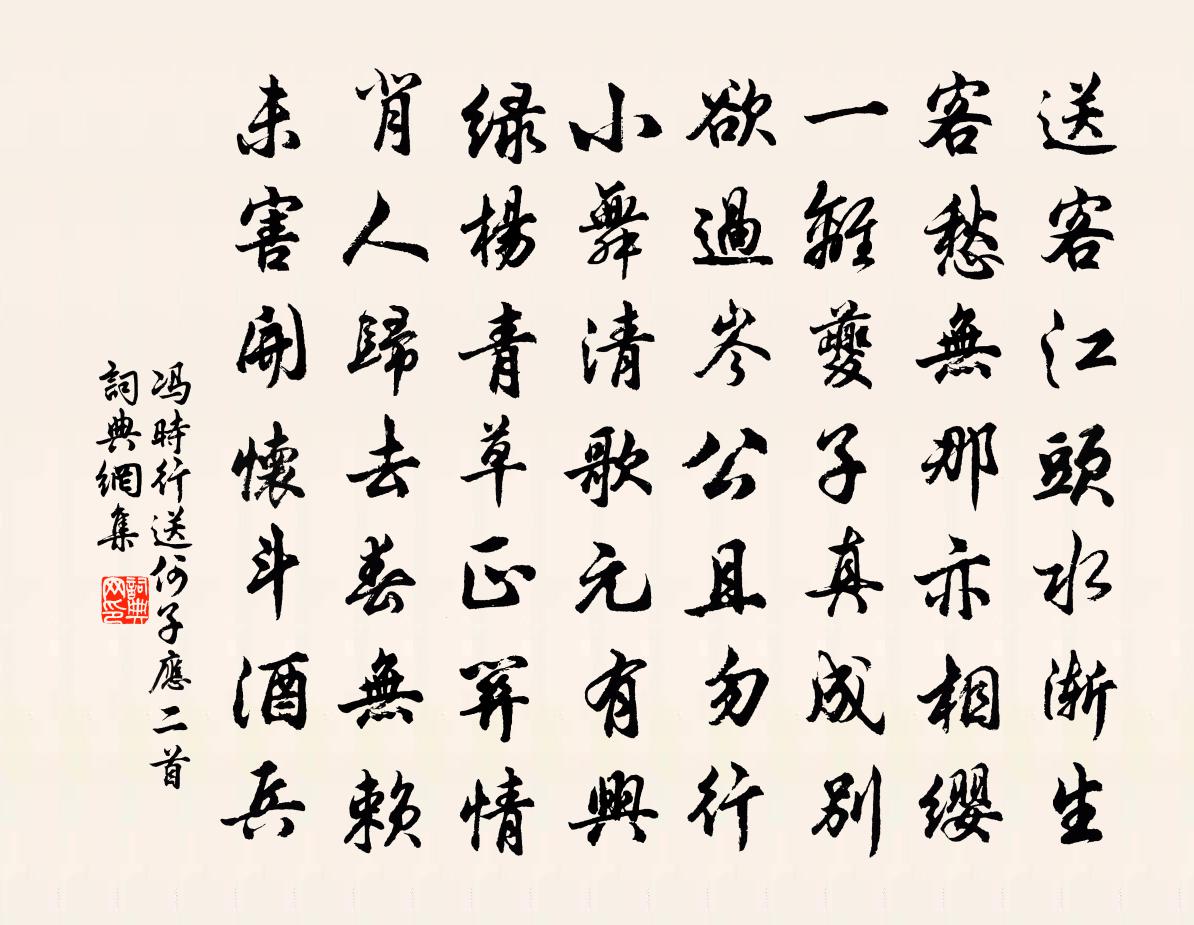 送客江頭水漸生
客愁無那亦相纓
一離夔子真成別
欲過岑公且勿行
小舞清歌元有興
緑楊青草正關情
肯人歸去春無賴
未害開懷斗酒兵
馮時行送何子應二首
詞典網集
詞典网印